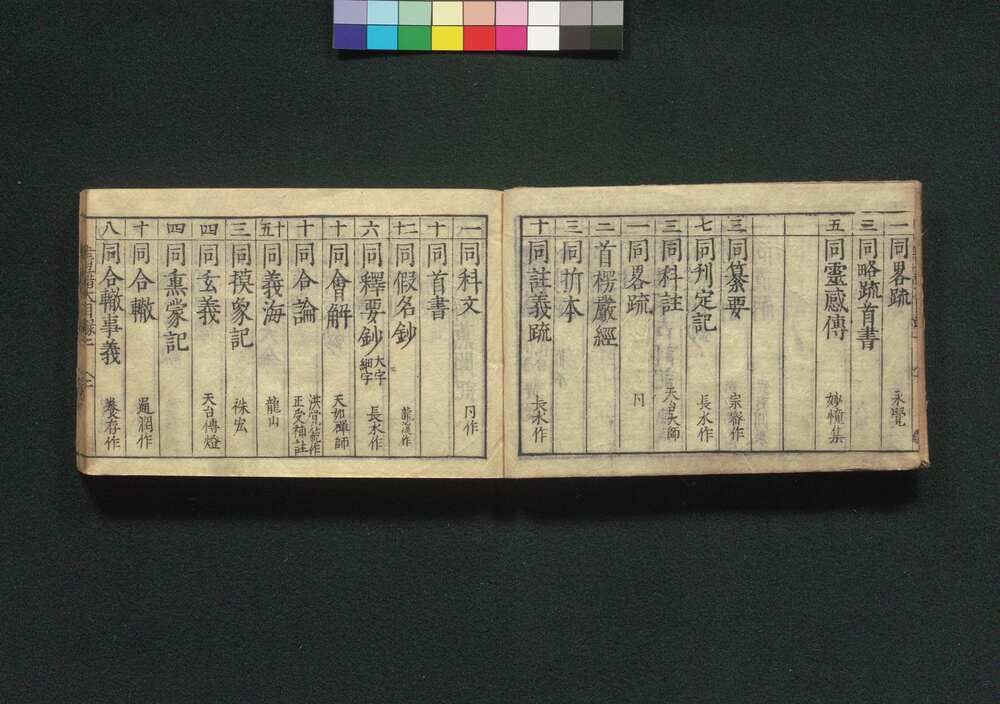 一 同畧疏 永覺
三 同略疏首書
五 同靈感傳 妙幢集
三 同纂要 宗密作
七 同刋定記 長水作
三 同科註 天台大師
一 同畧疏 同
二 首楞嚴經
三 同折本
十 同註義疏 長水作
一 同科文 同作
十 同首書
十二 同假名鈔 龍溪作
六 同釋要鈔 大字 細字 長水作
十 同會解 天如禅師
十 同合論 洪覚範作 正受補註
十五 同義海 龍山
三 同摸象記 袾宏
四 同玄義 天台傳燈
四 同熏蒙記
十 同合轍 通潤作
八 同合轍事義 養存作